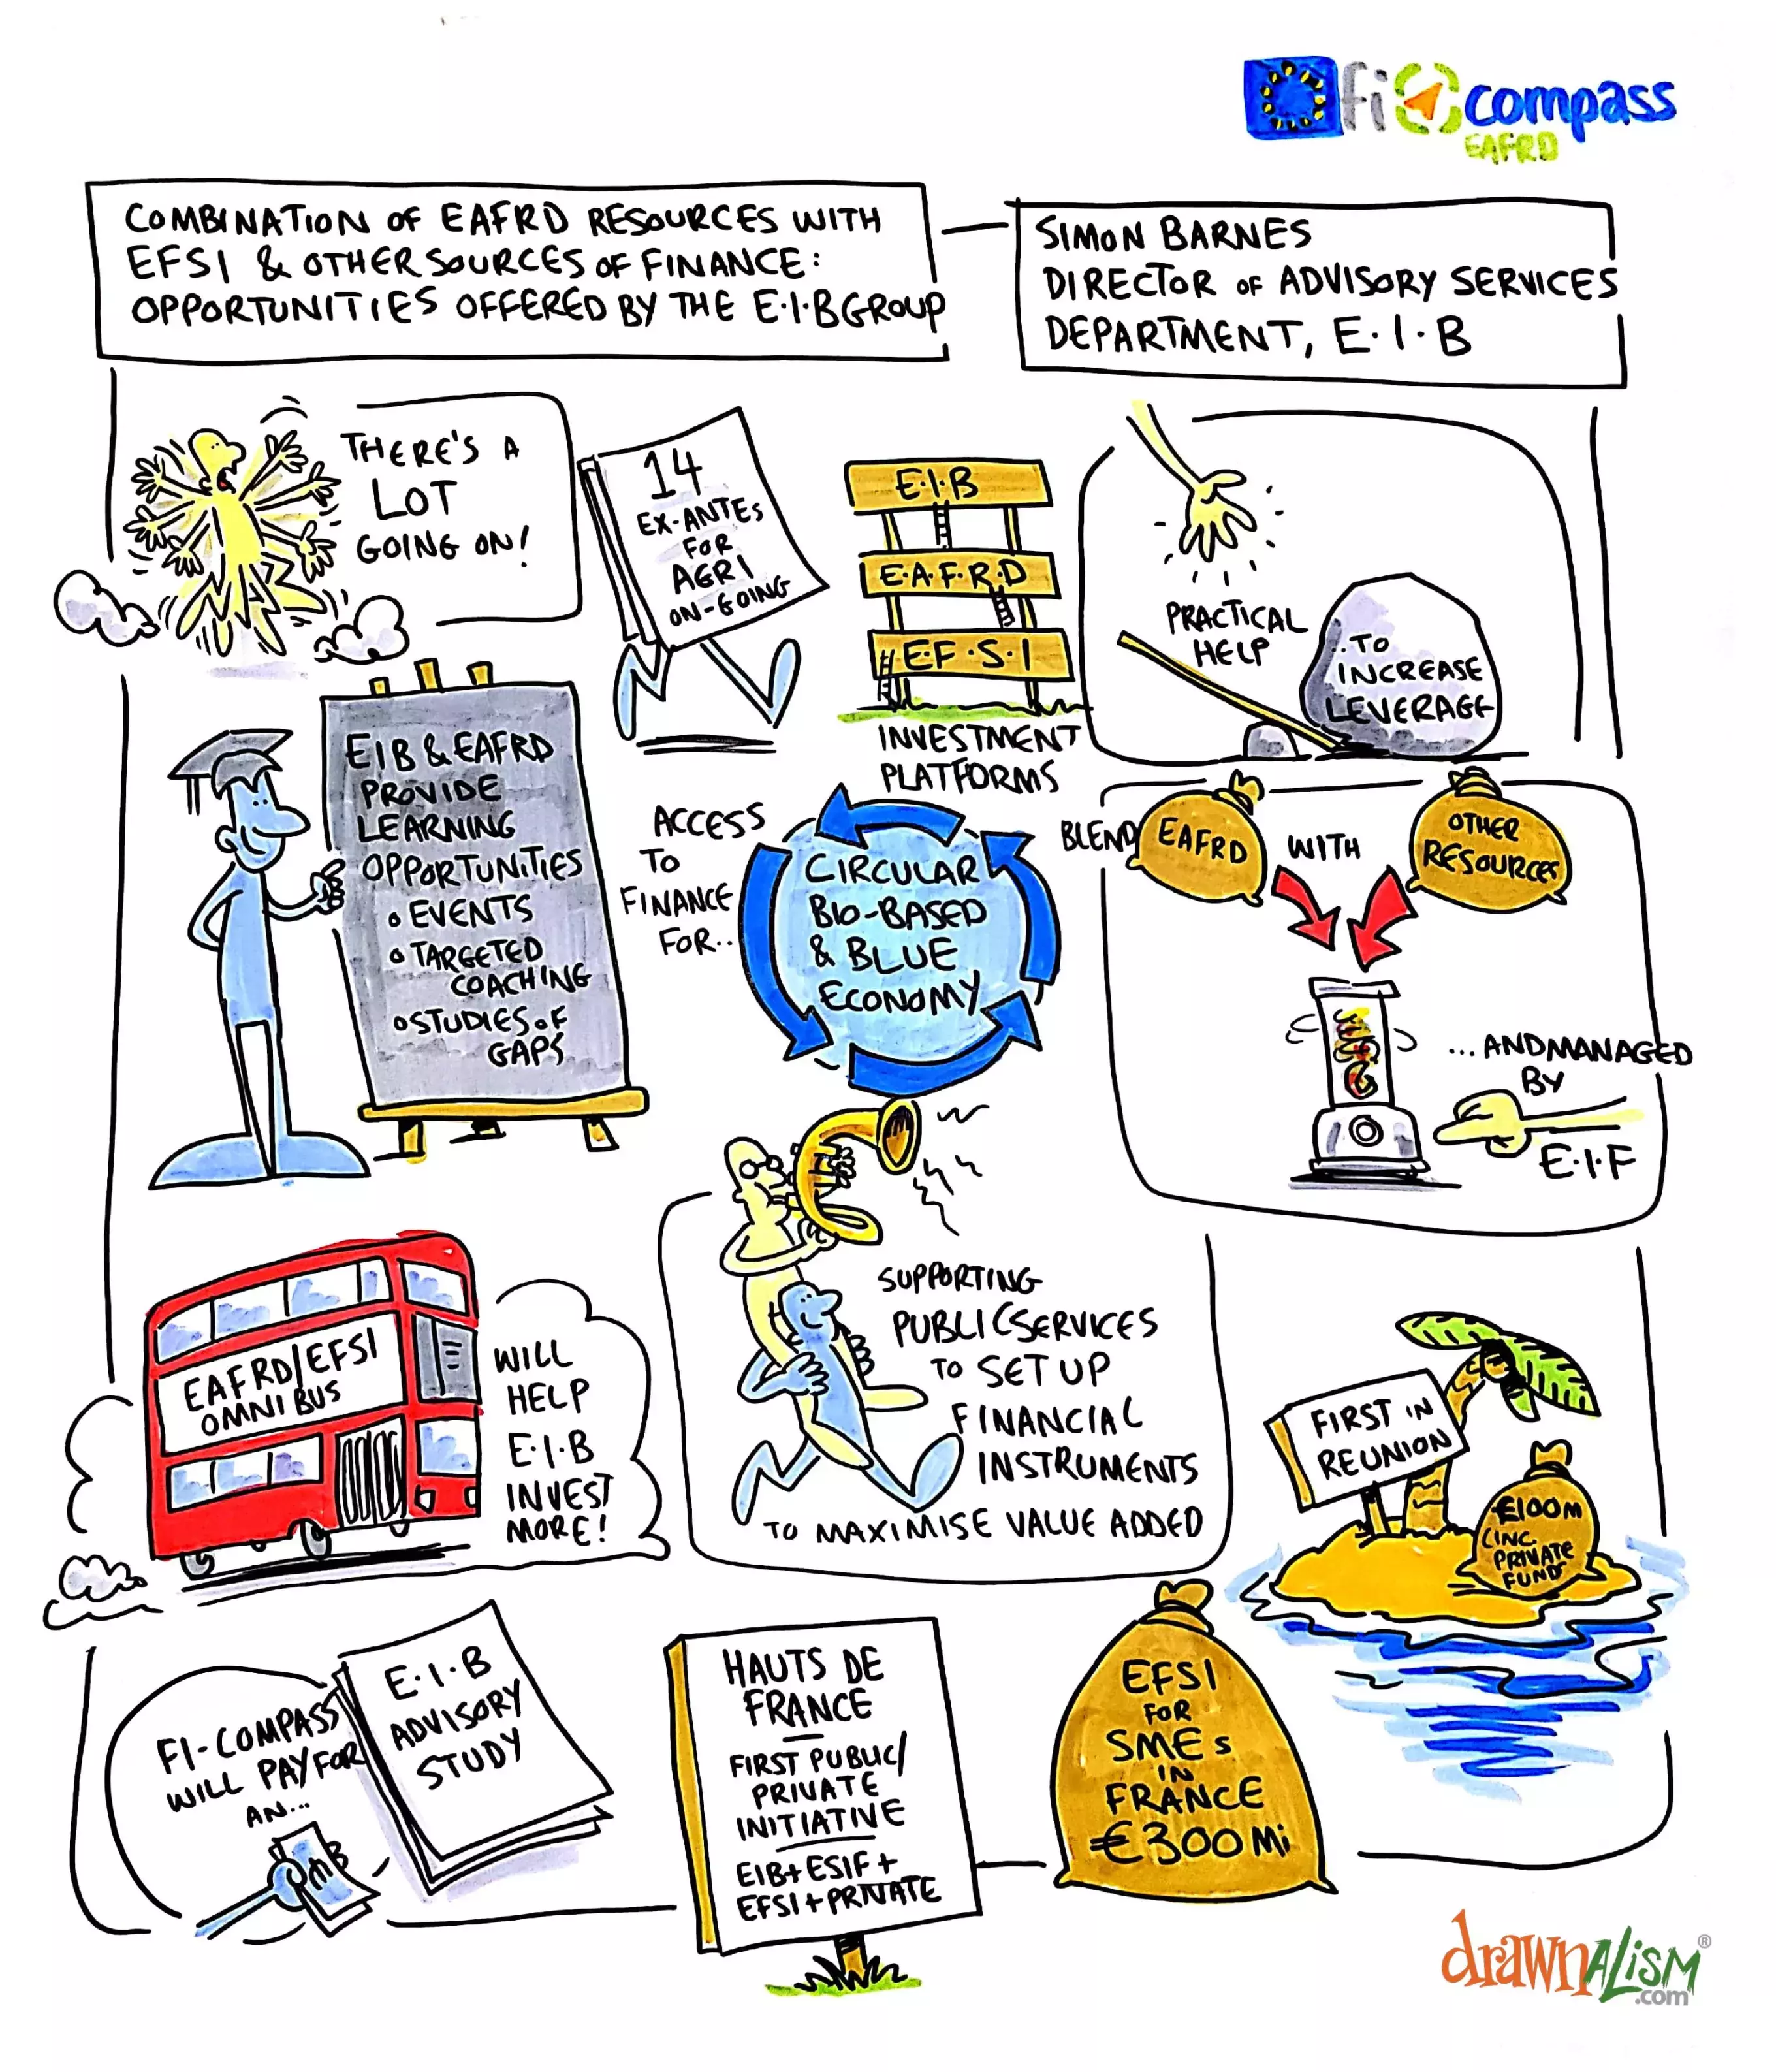 fi compass
EAFRD
COMBINATION OF EAFRD RESOURCES WITH
EFSI & OTHER SOURCES OF FINANCE:
OPPORTUNITIES OFFERED BY THE E·I·B GROUP
SIMON BARNES
DIRECTOR OF ADVISORY SERVICES
DEPARTMENT, E·I·B
THERE'S A
LOT
GOING ON!
14
EX-ANTES
FOR
AGRI
ON-GOING
E·I·B
E·A·F·R·D
E·F·S·I
INVESTMENT
PLATFORMS
PRACTICAL
HELP
..TO
INCREASE
LEVERAGE
EIB & EAFRD
PROVIDE
LEARNING
OPPORTUNITIES
• EVENTS
• TARGETED
COACHING
• STUDIES OF
GAPS
ACCESS
TO
FINANCE
FOR..
CIRCULAR
BIO-BASED
& BLUE
ECONOMY
BLEND
EAFRD
WITH
OTHER
RESOURCES
...AND MANAGED
BY
E·I·F
EAFRD/EFSI
OMNIBUS
WILL
HELP
E·I·B
INVEST
MORE!
SUPPORTING
PUBLIC SERVICES
TO SET UP
FINANCIAL
INSTRUMENTS
TO MAXIMISE VALUE ADDED
FIRST IN
REUNION
€100M
(INC
PRIVATE
FUNDS
FI-COMPASS
WILL PAY FOR
AN...
E·I·B
ADVISORY
STUDY
HAUTS DE
FRANCE
—
FIRST PUBLIC/
PRIVATE
INITIATIVE
EIB+ESIF+
EFSI+PRIVATE
EFSI
FOR
SMEs
IN
FRANCE
€300Mi
drawnalism®
.com